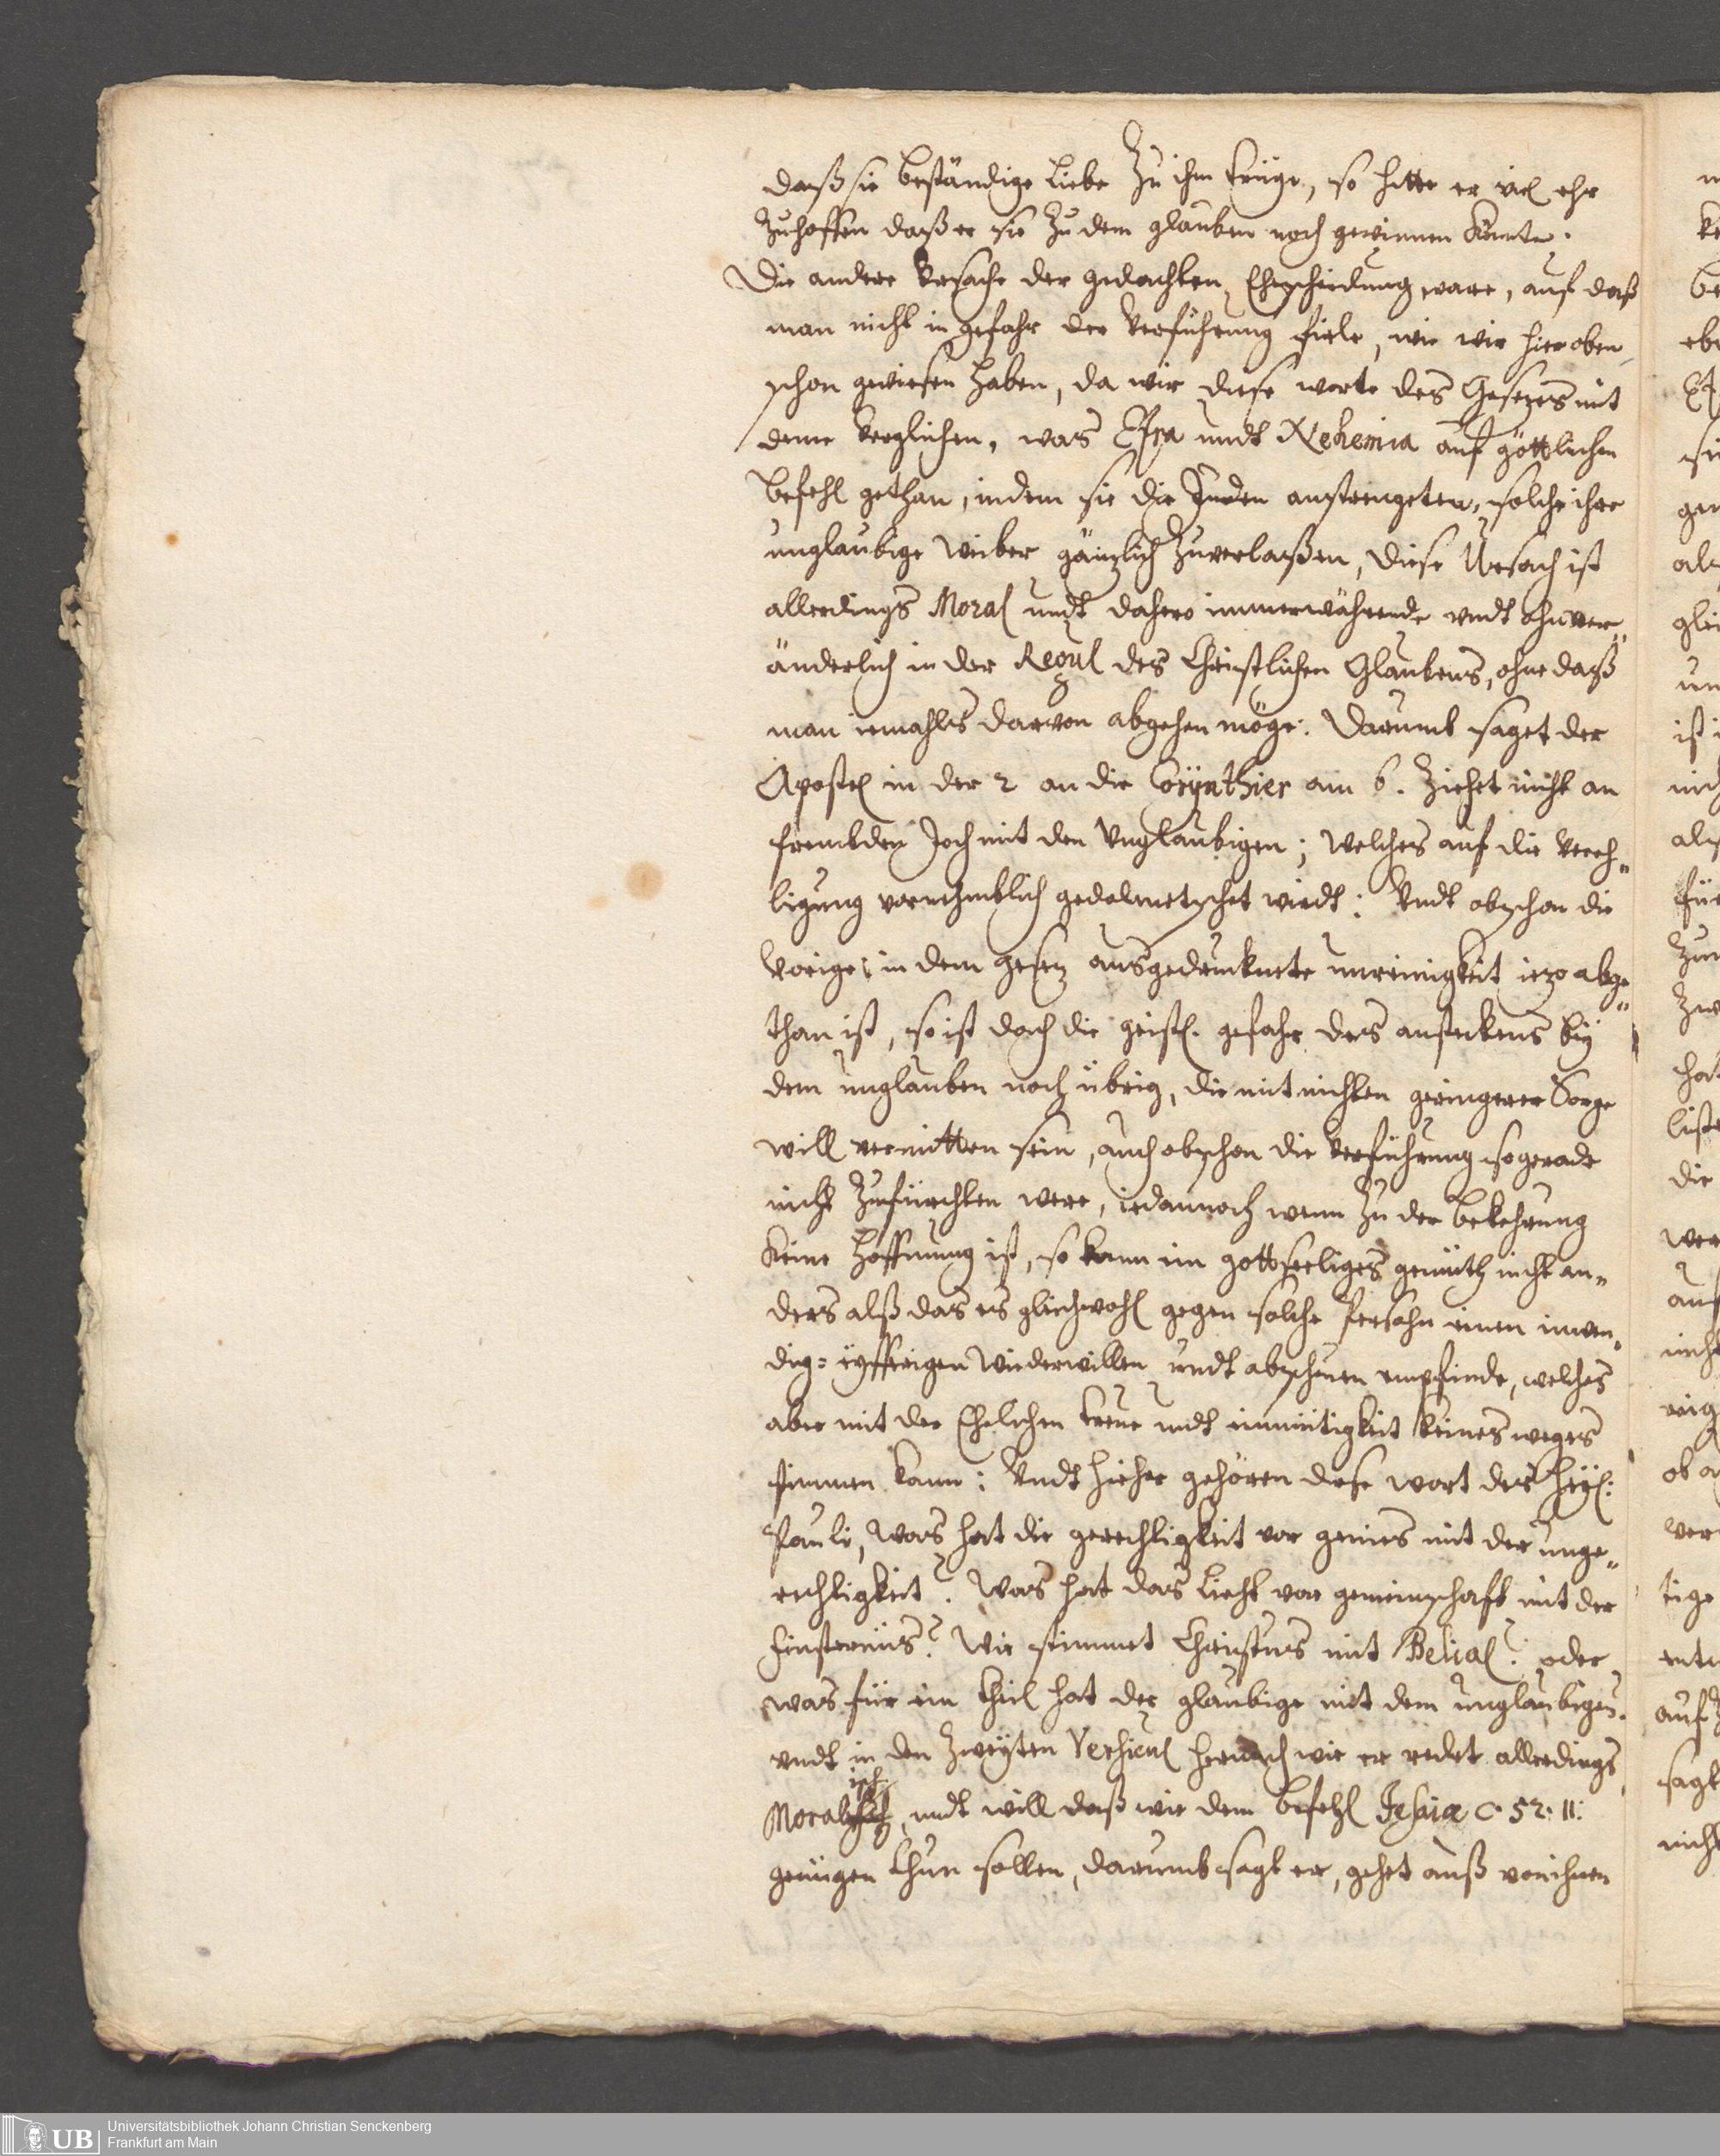 daß sie beständige Liebe Zu ihm trüge, so hette er viel ehr
Zuhoffen daß er sie Zu dem glauben noch gewinnen könnte.
Die andere Ursache der gedachten Ehescheidung ware, auf daß
man nicht in gefahr der Verführung fiele, wie wir hieroben
schon gewiesen haben, da wir diese worte des Gesezes mit
deme verglichen, was Esra undt Nehemia auf göttlichen
Befehl gethan, indem sie die Juden anstrengeten, solche ihre
unglaubige Weiber gänzlich Zuverlaßen, diese Ursach ist
allerdings Moral undt dahero immerwährende undt ohnver„
änderlich in der Regul des Christlichen Glaubens, ohne daß
man iemahls darvon abgehen möge: Darumb saget der
Apostel in der 2 an die Corÿnthier am 6. Ziehet nicht an
frembden Joch mit den Unglaubigen; Welches auf die Vereh„
ligung vornehmblich gedolmetschet wirdt: Undt obschon die
Vorige in dem gesez ausgedruckte unreinigkeit iezo abge„
than ist, so ist doch die geistl. gefahr des ansteckens beÿ
dem unglauben noch übrig, die mit nichten geringerer Sorge
will vermitten sein, auch obschon die Verführung so gerade
nicht Zufürchten were, iedannoch wenn Zu der bekehrung
keine Hoffnung ist, so kann ein gottseeliges gemüth nicht an„
ders alß das es gleichwohl gegen solche Persohn einen inwen„
dig= eÿfferigen Wiederwillen undt abscheuen empfinde, welches
aber mit der Ehelichen treue undt einmütigkeit keines weges
stimmen kann: Undt hieher gehören diese wort des Heÿl:
Pauli, Was hat die gerechtigkeit vor genies mit der unge„
rechtigkeit? Was hat das Liecht vor gemeinschaft mit der
Finsternüs? Wie stimmet Christus mit Belial? oder
was für ein theil hat der glaubige mit dem unglaubigen.
undt in den Zweÿten Versicul hernach wie er redet allerdings
Moralisch, undt will daß wir dem befehl Jesaiæ C. 52: 11:
genügen thun sollen, darumb sagt er, gehet auß von ihnen
Universitätsbibliothek Johann Christian Senckenberg
Frankfurt am Main
UB